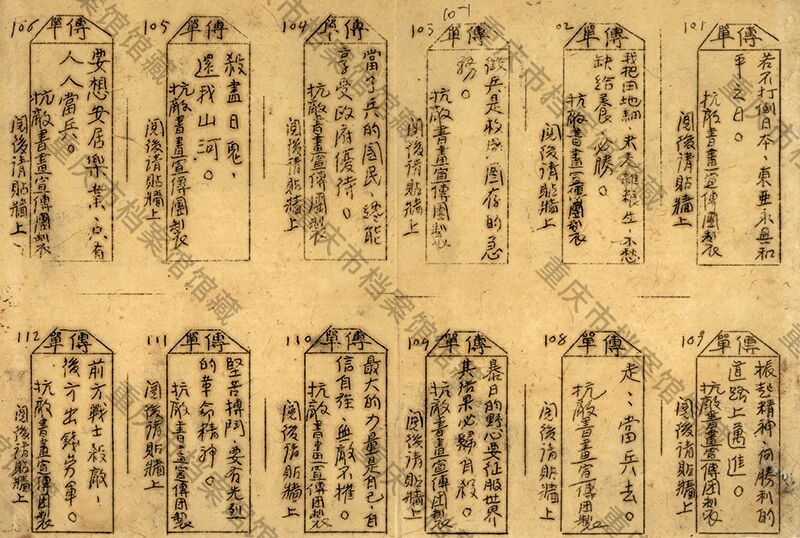 101
傳單
若不打倒日本、東亞永無和
平之日。
抗敵書畫宣傳團製
閱後請貼牆上
02
傳單
我把田地細
缺給養、必勝。
抗敵書畫宣傳團製
閱後請貼牆上
10-1
103
傳單
徵兵是救國圖存的急
務。
抗敵書畫宣傳團製
閱後請貼牆上
104
傳單
當了兵的國民、總能
享受政府優待。
抗敵書畫宣傳團製
閱後請貼牆上
105
傳單
殺盡日鬼、
還我山河。
抗敵書畫宣傳團製
閱後請貼牆上
106
傳單
要想安居樂業、只有
人人當兵。
抗敵書畫宣傳團製
閱後請貼牆上
109
傳單
振起精神、向勝利的
道路上邁進。
抗敵書畫宣傳团製
閱後請貼牆上
108
傳單
走、、當兵去。
抗敵書畫宣傳团製
閱後請貼牆上
109
傳單
暴日的野心要征服世界
其結果必歸自殺。
抗敵書畫宣傳团製
閱後請貼牆上
110
傳單
最大的力量是自己、自
信自強、無敵不摧。
抗敵書畫宣傳团製
閱後請貼牆上
111
傳單
堅苦搏鬥、要有先烈
的革命精神。
抗敵書畫宣傳团製
閱後請貼牆上
112
傳單
前方戰士殺敵、
後方出錢勞軍。
抗敵書畫宣傳团製
閱後請貼牆上
重庆市档案馆馆藏